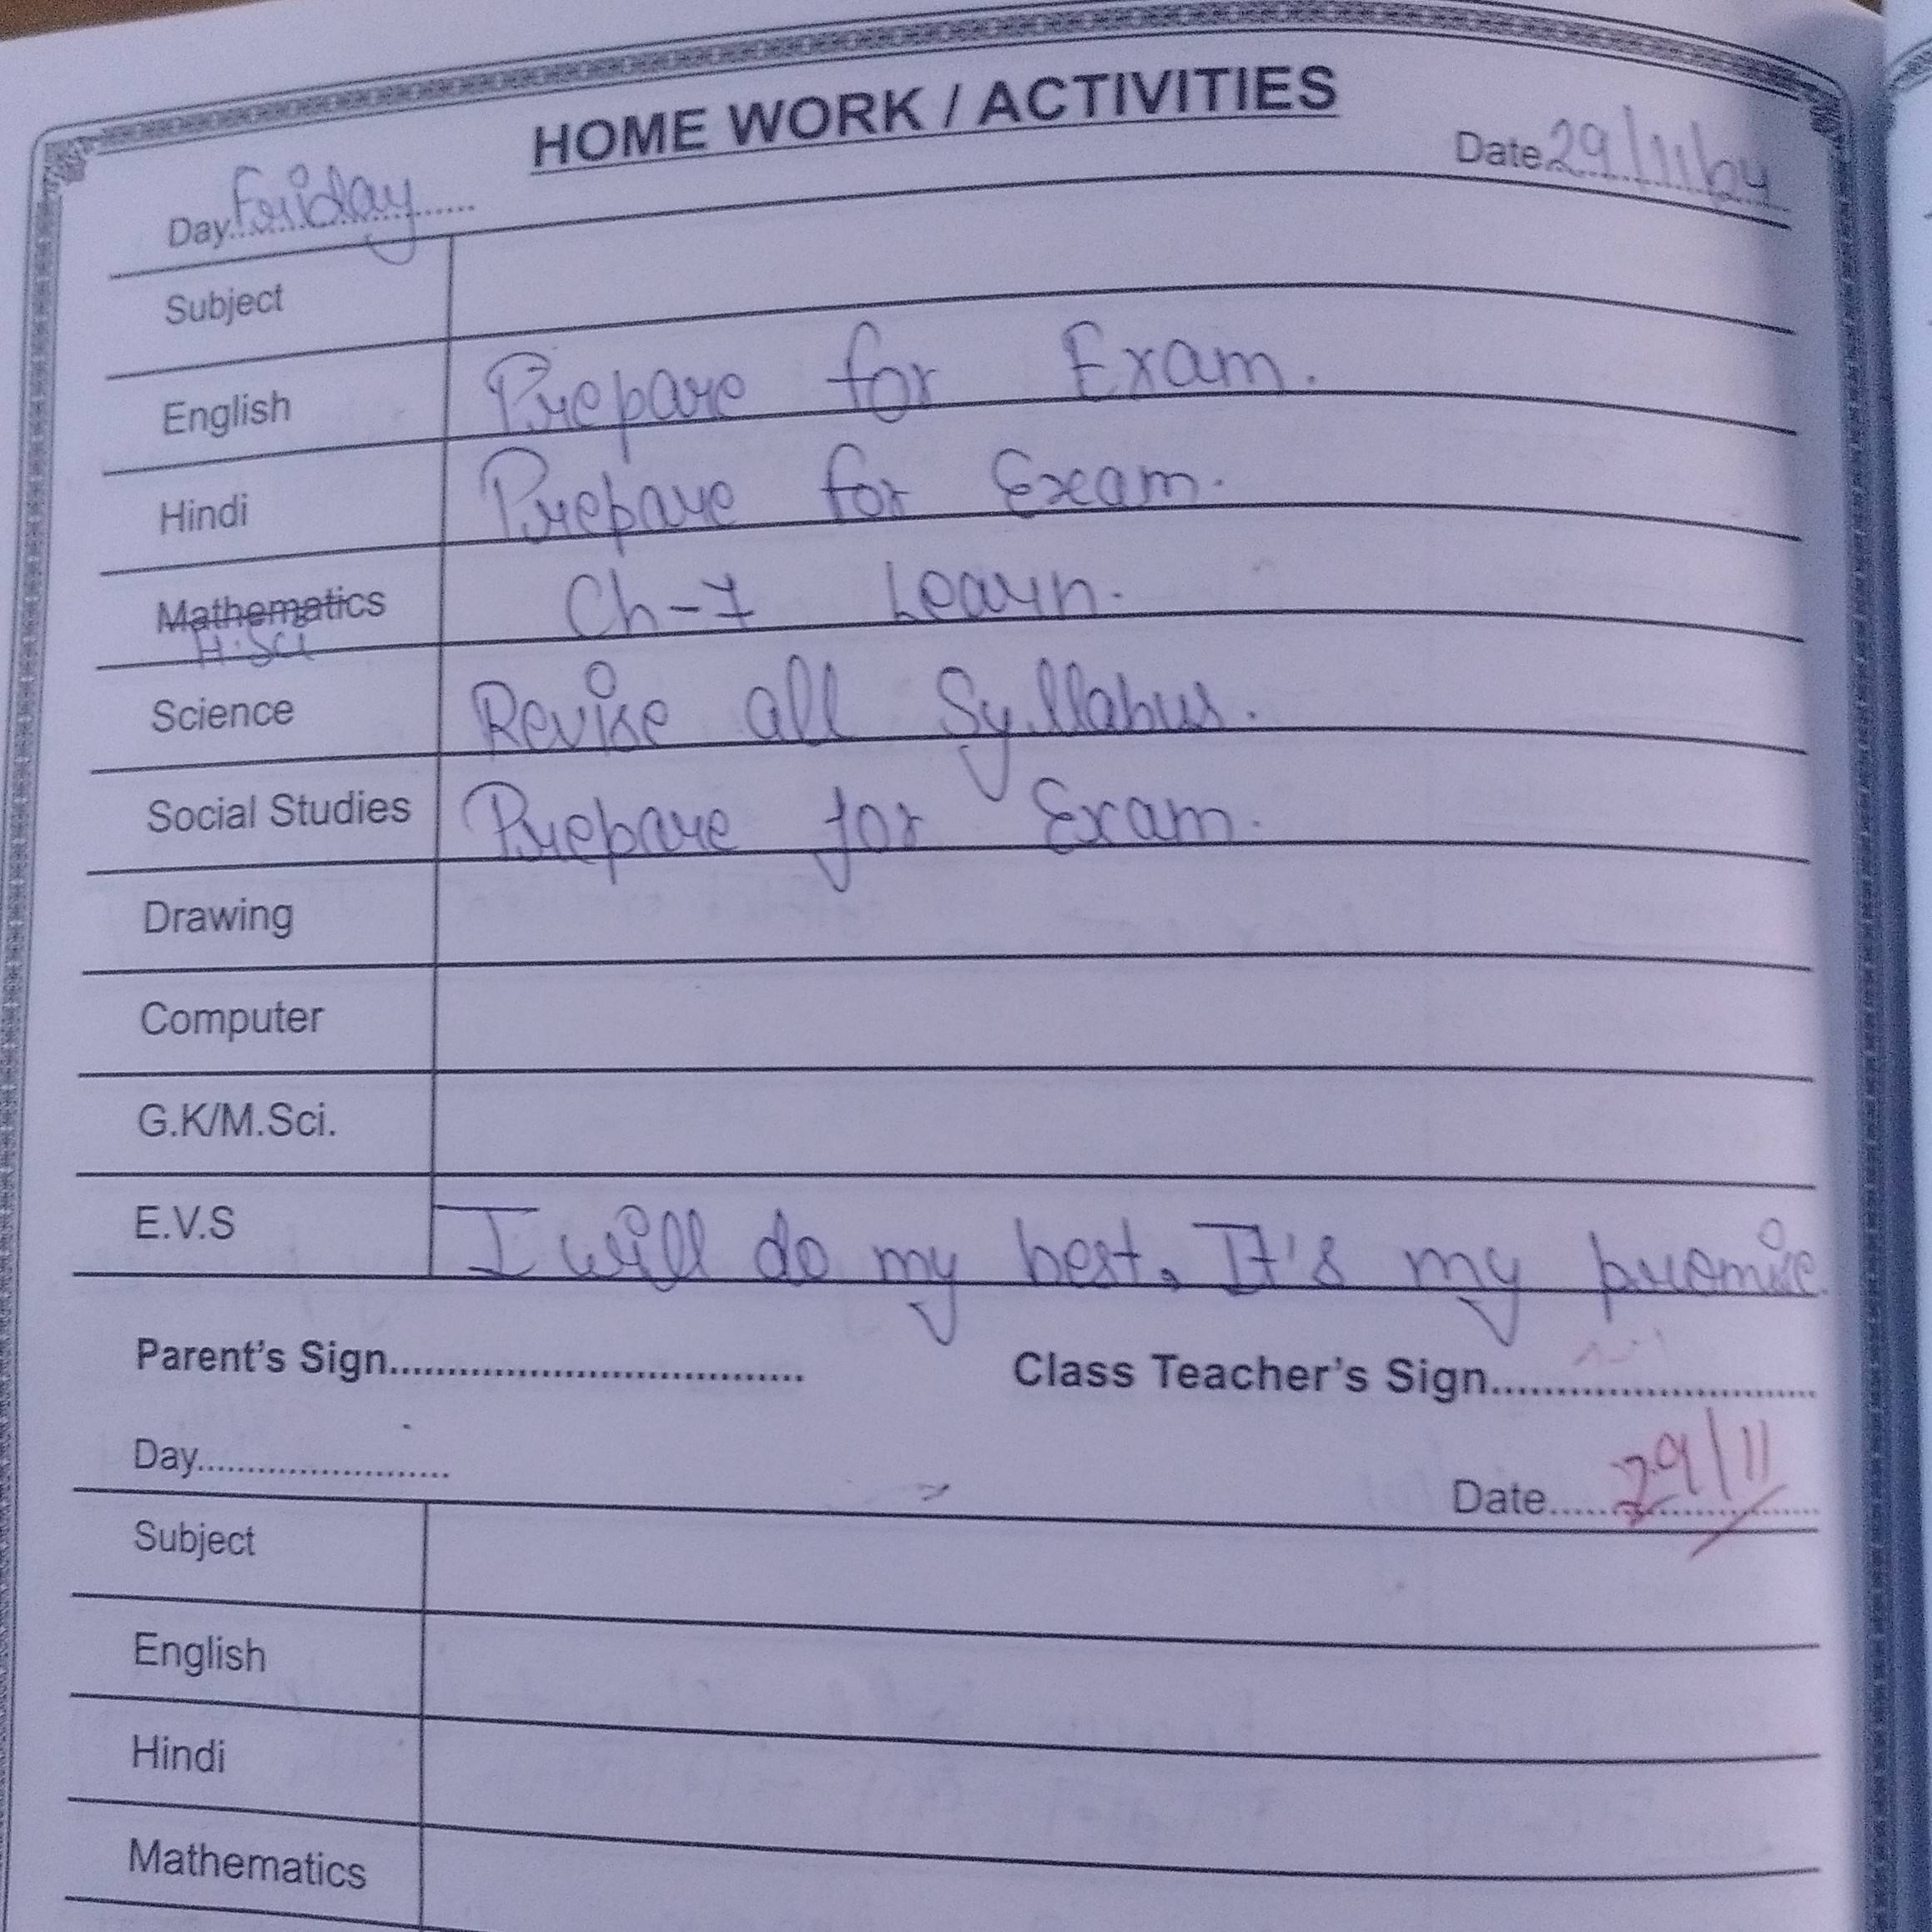 HOME WORK / ACTIVITIES
Day Friday Date 29/11/24
Subject
English Prepare for Exam.
Hindi Prepare for Exam.
Mathematics Ch-7 Learn.
H.Sci
Science Revise all Syllabus.
Social Studies Prepare for Exam.
Drawing
Computer
G.K/M.Sci.
E.V.S I will do my best. It's my promise.
Parent's Sign........ Class Teacher's Sign........
Day........ Date 29/11
Subject
English
Hindi
Mathematics